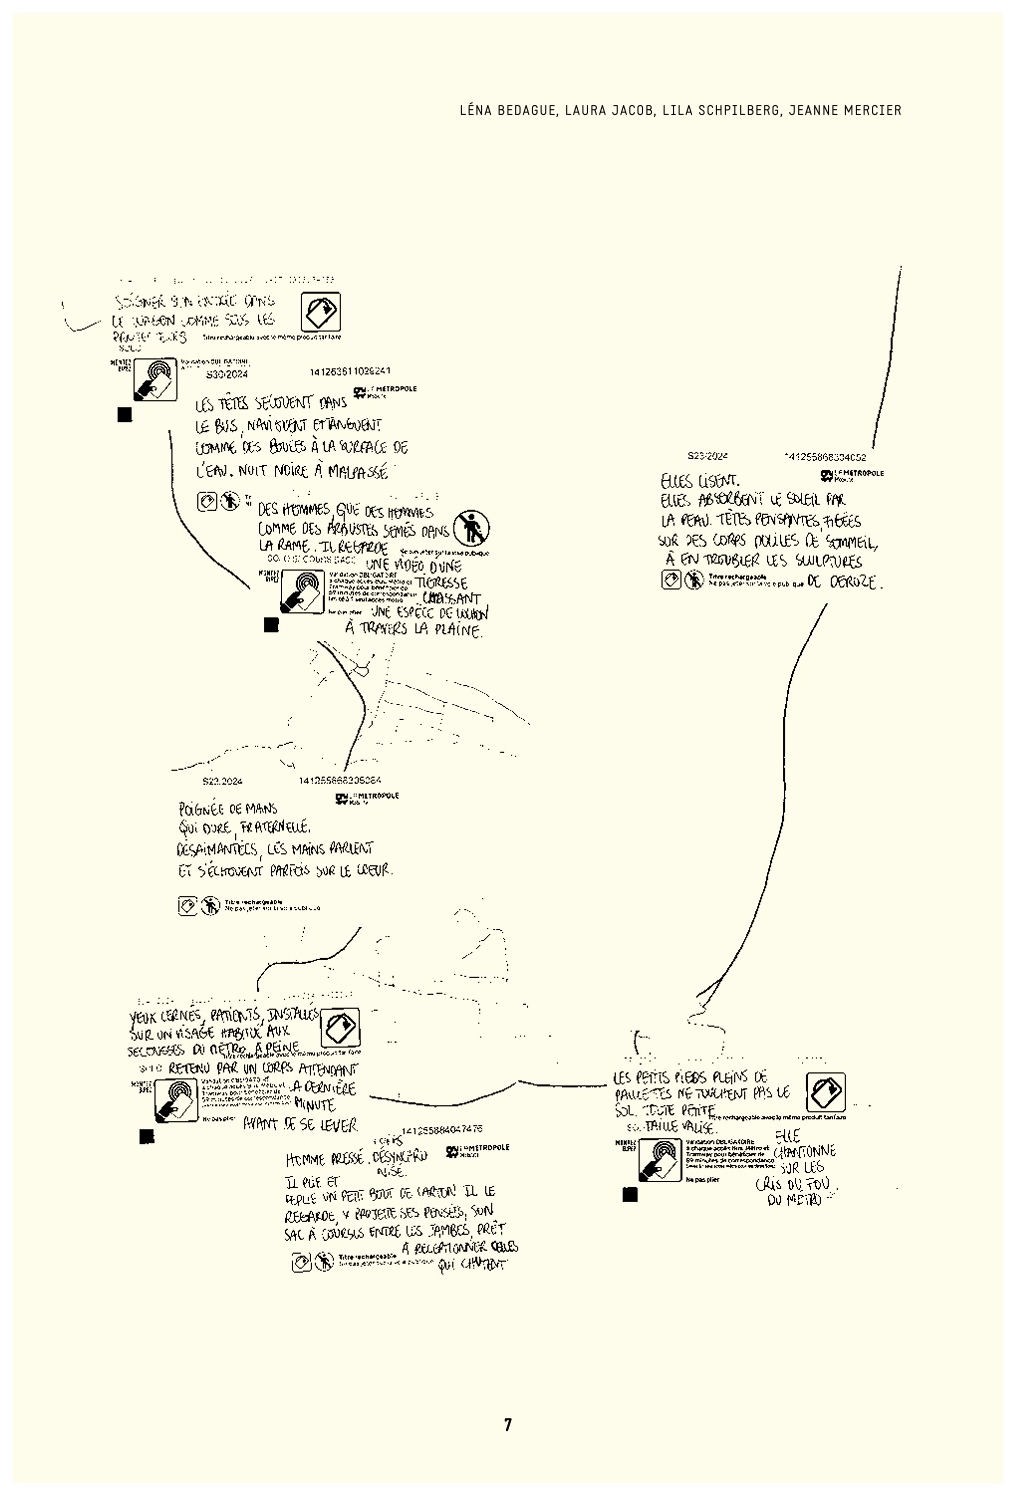 LÉNA BEDAGUE, LAURA JACOB, LILA SCHPILBERG, JEANNE MERCIER
SOIGNER SON ENTRÉE DANS
LE WAGON COMME SOUS LES
Titre rechargeable avec le même produit tarifaire
SOLO
MONTEZ
BIPEZ
Validation OBLIGATOIRE
S30/2024
LA METROPOLE
Mobilité
LES TÊTES SECOUENT DANS
LE BUS, NAVIGUENT ET TANGUENT
COMME DES BOUÉES À LA SURFACE DE
L'EAU. NUIT NOIRE À MALPASSÉ
DES HOMMES, QUE DES HOMMES
COMME DES ARBUSTES SEMÉS DANS
LA RAME. IL REGARDE
Ne pas jeter sur la voie publique
UNE VIDÉO D'UNE
TIGRESSE
CHASSANT
UNE ESPÈCE DE COCHON
À TRAVERS LA PLAINE.
MONTEZ
BIPEZ
Validation OBLIGATOIRE
à chaque accès Bus, Métro et
Tramway pour bénéficier de
89 minutes de correspondance
Ne pas plier
S23/2024
141255868304052
LA METROPOLE
Mobilité
ELLES LISENT.
ELLES ABSORBENT LE SOLEIL PAR
LA PEAU. TÊTES PENSANTES, FIGÉES
SUR DES CORPS DOCILES DE SOMMEIL,
À EN TROUBLER LES SCULPTURES
Titre rechargeable
Ne pas jeter sur la voie publique
DE DEROZE.
S23/2024
LA METROPOLE
Mobilité
POIGNÉE DE MAINS
QUI DURE, FRATERNELLE.
DÉSAIMANTÉES, LES MAINS PARLENT
ET S'ÉCHOUENT PARFOIS SUR LE COEUR.
Titre rechargeable
Ne pas jeter sur la voie publique
YEUX CERNÉS, PATIENTS, INSTALLÉS
SUR UN VISAGE HABITUÉ AUX
SECOUSSES DU MÉTRO, À PEINE
Titre rechargeable avec le même produit tarifaire
RETENU PAR UN CORPS ATTENDANT
LA DERNIÈRE
MINUTE
AVANT DE SE LEVER
MONTEZ
BIPEZ
Validation OBLIGATOIRE
à chaque accès Bus, Métro et
Tramway pour bénéficier de
89 minutes de correspondance
Ne pas plier
141255884047476
LA METROPOLE
Mobilité
HOMME PRESSÉ. DÉSYNCHRO
NISÉ.
IL PLIE ET
REPLIE UN PETIT BOUT DE CARTON IL LE
REGARDE, Y PROJETTE SES PENSÉES, SON
SAC À COURSES ENTRE LES JAMBES, PRÊT
À RÉCEPTIONNER CELLES
QUI CHUTENT
Titre rechargeable
Ne pas jeter sur la voie publique
LES PETITS PIEDS PLEINS DE
PAILLETTES NE TOUCHENT PAS LE
SOL. TOUTE PETITE
Titre rechargeable avec le même produit tarifaire
TAILLE VALISE.
ELLE
CHANTONNE
SUR LES
CRIS DU FOU
DU MÉTRO
MONTEZ
BIPEZ
Validation OBLIGATOIRE
à chaque accès Bus, Métro et
Tramway pour bénéficier de
89 minutes de correspondance
Ne pas plier
7